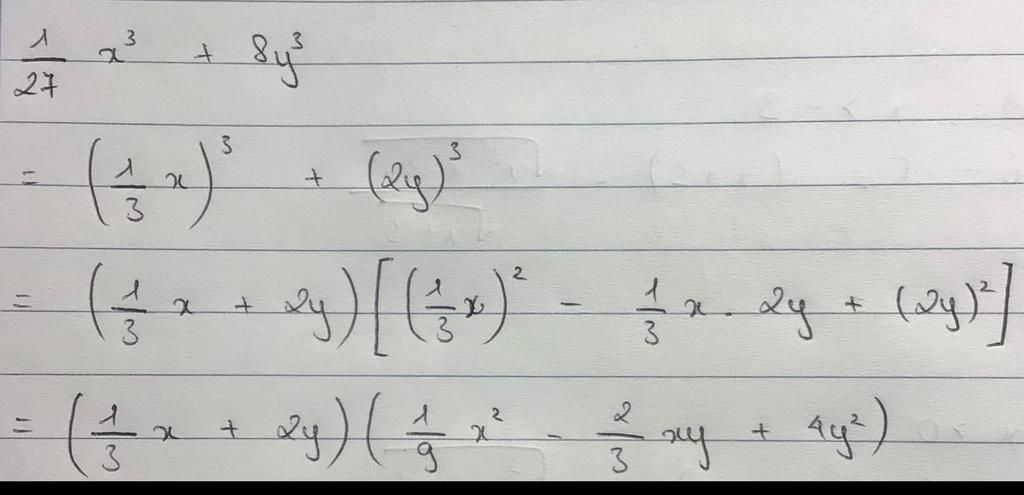 1/27 x³ + 8y³
= (1/3 x)³ + (2y)³
= (1/3 x + 2y) [(1/3 x)² - 1/3 x . 2y + (2y)²]
= (1/3 x + 2y) (1/9 x² - 2/3 xy + 4y²)